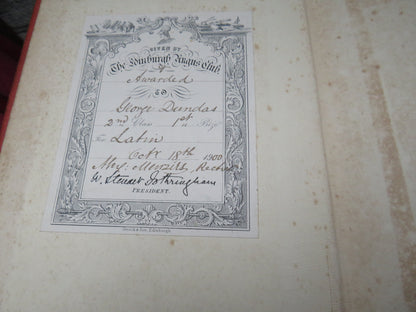 GIVEN BY
The Edinburgh Angus Club
&
Awarded
TO
George Dundas
2nd Class 1st Prize
For Latin
Octr 18th 1900
Alex. Menzies, Rector
W. Steuart Fothringham
PRESIDENT.